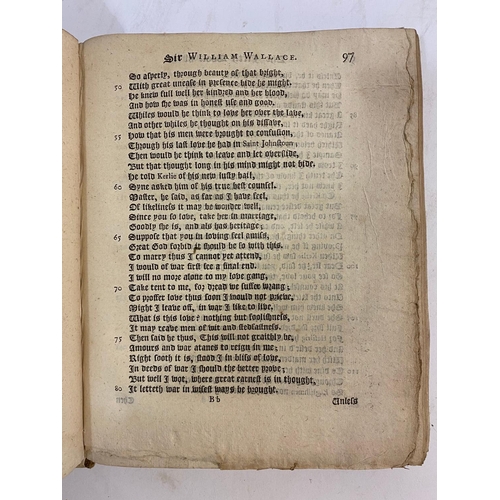 Sir WILLIAM WALLACE. 97
So asperly, through beauty of that bright,
50 With great unease in presence bide he might.
He knew full well her kindred and her blood,
And how she was in honest use and good.
Whiles would he think to love her over the lave,
And other whiles he thought on his dissave,
55 How that his men were brought to confusion,
Through his last love he had in Saint Johnstoun;
Then would he think to leave and let overslide,
But that thought long in his mind might not bide.
He told Kerlie of his new lusty hast,
60 Syne asked him of his true best counsel.
Master, he said, as far as I have feel,
Of likeliness it may be wonder well,
Since you so love, take her in marriage,
Goodly she is, and als has heritage;
65 Suppose that you in loving feel amiss,
Great God forbid it should be so with this.
To marry thus I cannot yet attend,
I would of war first see a final end.
I will no more alone to my love gang,
70 Take tent to me, for dread we suffer wrang;
To proffer love thus soon I would not prieve,
Might I leave off, in war I like to live,
What is this love? nothing but foolishness,
It may reave men of wit and stedfastness.
75 Then said he thus, This will not graithly be,
Amours and war atanes to reign in me;
Right sooth it is, stood I in bliss of love,
In deeds of war I should the better prove;
But well I wot, where great earnest is in thought,
80 It letteth war in wisest ways be brought.
Bb Unless